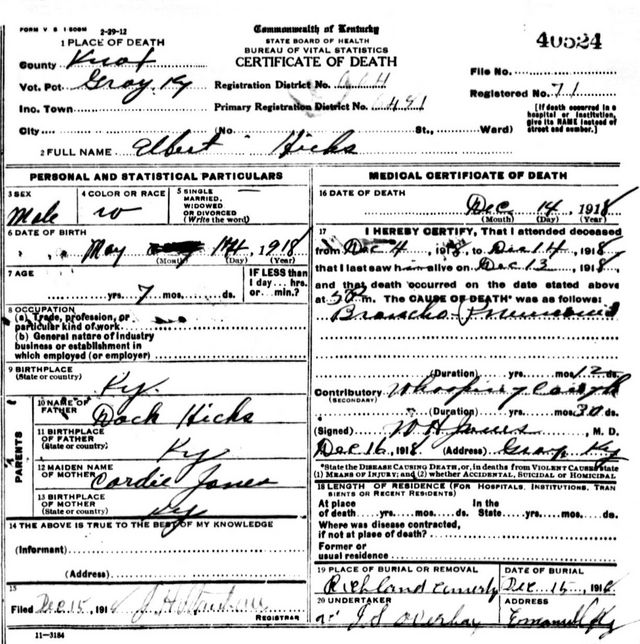 FORM V S 1 500M 2-29-12
Commonwealth of Kentucky
STATE BOARD OF HEALTH
BUREAU OF VITAL STATISTICS
CERTIFICATE OF DEATH
40524
1 PLACE OF DEATH
County Knox
Vot. Pct. Gray Ky
Inc. Town
City No. St., Ward)
Registration District No.
Primary Registration District No.
File No.
Registered No. 71
[If death occurred in a
hospital or institution,
give its NAME instead of
street and number.]
2 FULL NAME Albert Hicks
PERSONAL AND STATISTICAL PARTICULARS
3 SEX
Male
4 COLOR OR RACE
w
5 SINGLE
MARRIED,
WIDOWED
OR DIVORCED
(Write the word)
6 DATE OF BIRTH
May 14, 1918
(Month) (Day) (Year)
7 AGE
yrs. 7 mos. ds.
IF LESS than
1 day, hrs.
or min.?
8 OCCUPATION
(a) Trade, profession, or
particular kind of work
(b) General nature of industry
business or establishment in
which employed (or employer)
9 BIRTHPLACE
(State or country)
Ky.
PARENTS
10 NAME OF
FATHER
Dock Hicks
11 BIRTHPLACE
OF FATHER
(State or country)
Ky
12 MAIDEN NAME
OF MOTHER
Cordie Jones
13 BIRTHPLACE
OF MOTHER
(State or country)
Ky
14 THE ABOVE IS TRUE TO THE BEST OF MY KNOWLEDGE
(Informant)
(Address)
15
Filed Dec 15, 191
REGISTRAR
11-3184
MEDICAL CERTIFICATE OF DEATH
16 DATE OF DEATH
Dec. 14, 1918
(Month) (Day) (Year)
17 I HEREBY CERTIFY, That I attended deceased
from Dec 4, 1918, to Dec 14, 1918,
that I last saw him alive on Dec 13, 1918,
and that death occurred on the date stated above
at m. The CAUSE OF DEATH* was as follows:
Broncho-Pneumonia
(Duration) yrs. mos. 12 ds.
Contributory Whooping Cough
(SECONDARY)
(Duration) yrs. mos. 30 ds.
(Signed) W H Jones, M. D.
Dec 16, 1918 (Address) Gray Ky
*State the DISEASE CAUSING DEATH, or, in deaths from VIOLENT CAUSES state
(1) MEANS OF INJURY; and (2) whether ACCIDENTAL, SUICIDAL or HOMICIDAL
18 LENGTH OF RESIDENCE (FOR HOSPITALS, INSTITUTIONS, TRAN
SIENTS OR RECENT RESIDENTS)
At place In the
of death yrs. mos. ds. State yrs. mos. ds.
Where was disease contracted,
if not at place of death?
Former or
usual residence
19 PLACE OF BURIAL OR REMOVAL
Richland
DATE OF BURIAL
Dec 15, 191
20 UNDERTAKER
J S Overbay
ADDRESS
Emanuel Ky